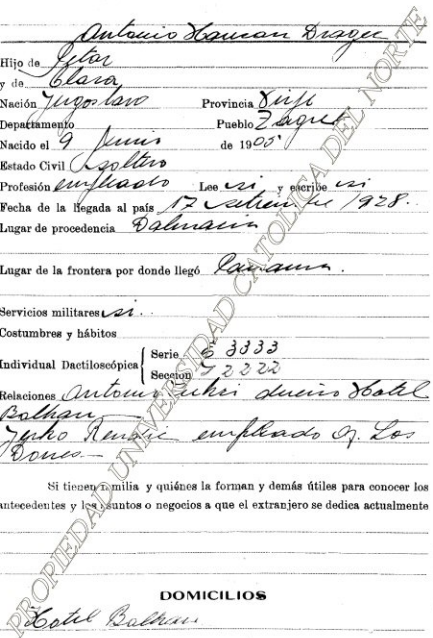 Antonio Haman Drager
Hijo de Petar
y de Clara
Nación Jugoslavo Provincia
Departamento Pueblo Zagreb
Nacido el 9 Junio de 1905
Estado Civil soltero
Profesión empleado Lee si y escribe si
Fecha de la llegada al país 17 setiembre 1928.
Lugar de procedencia Dalmacia
Lugar de la frontera por donde llegó
Servicios militares si.
Costumbres y hábitos
Individual Dactiloscópica
Serie 3333
Seccion 2222
Relaciones Antonio dueño Hotel
Balkan
Jerko empleado Of. Los
Si tienen familia y quiénes la forman y demás útiles para conocer los
antecedentes y los asuntos o negocios a que el extranjero se dedica actualmente
DOMICILIOS
Hotel Balkan
PROPIEDAD UNIVERSIDAD CATOLICA DEL NORTE